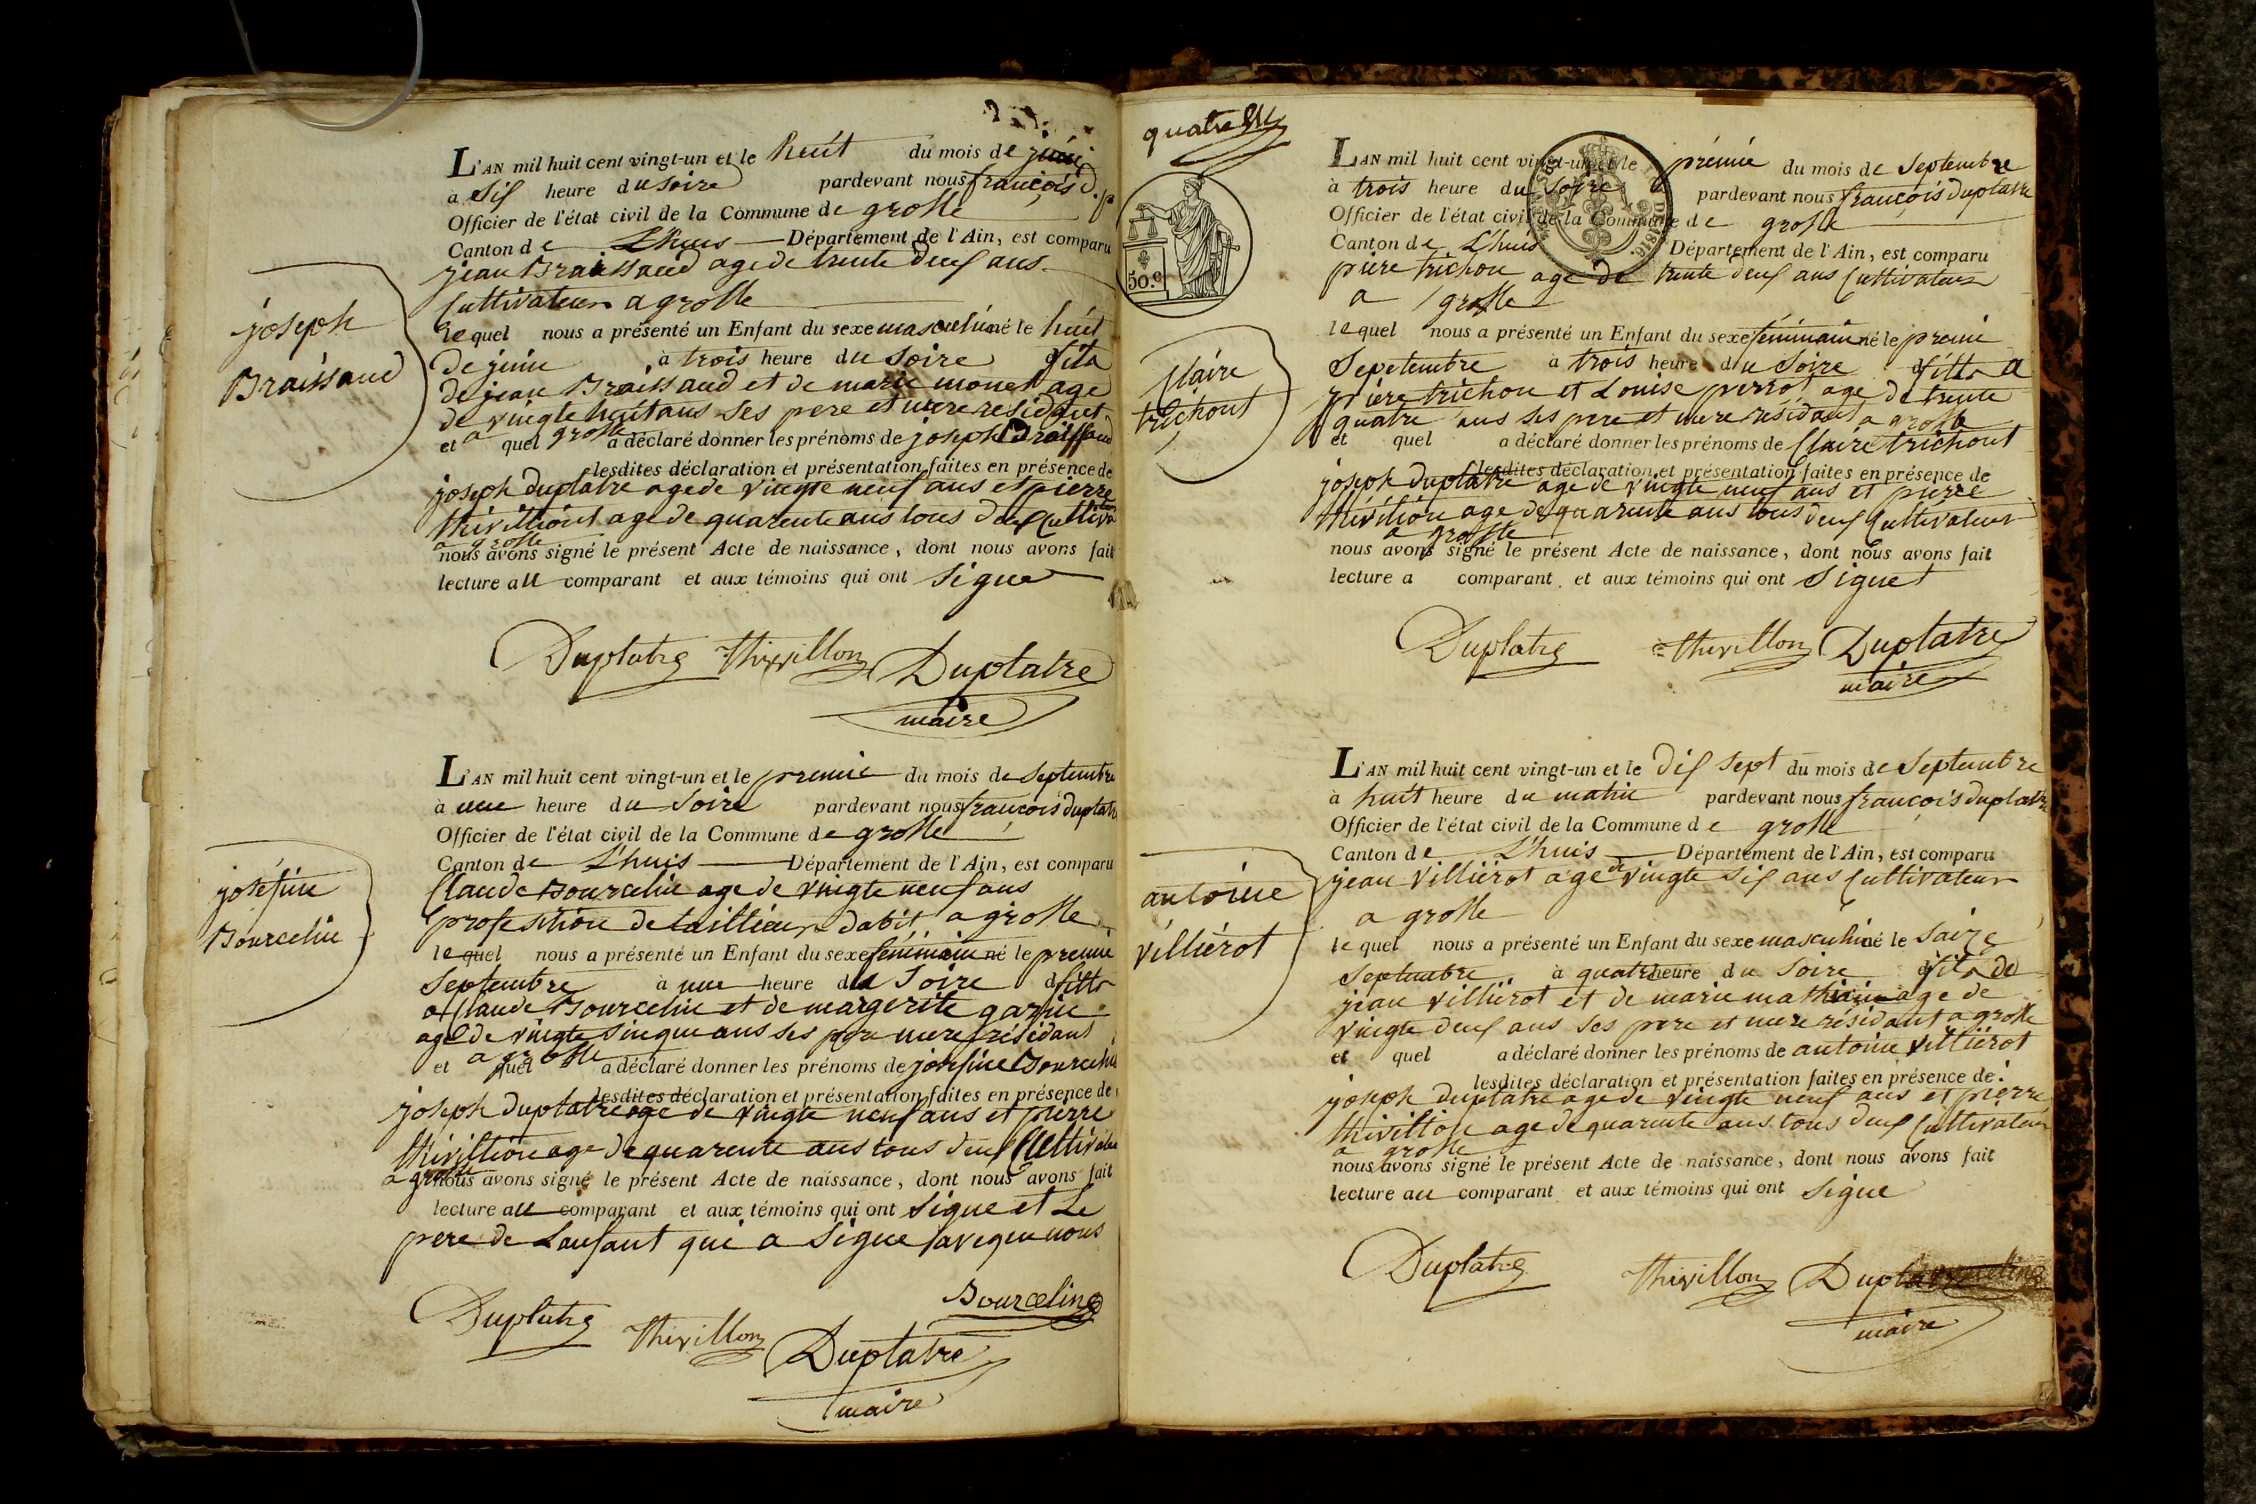 joseph
Braissaud
L'AN mil huit cent vingt-un et le huit du mois de juin
à Sis heure du soire pardevant nous françois d
Officier de l'état civil de la Commune de grosle
Canton de L'huis Département de l'Ain, est comparu
jean Braissaud age de trente deus ans
Cultivateur a grosle
le quel nous a présenté un Enfant du sexe masculin né le huit
de juin à trois heure du soire fils
de jean Braissaud et de marie monet age
de vingte huit ans ses pere et mere residant
et a quel grosle a déclaré donner les prénoms de joseph Braissaud
lesdites déclaration et présentation faites en présence de
joseph duplatre age de vingte neuf ans et pierre
thivillion age de quarente ans tous deus Cultiva
a grosle
nous avons signé le présent Acte de naissance, dont nous avons fait
lecture au comparant et aux témoins qui ont Signe
Duplatre Thivillon Duplatre
maire
joséfine
Bourcelin
L'AN mil huit cent vingt-un et le premie du mois de Septembre
à une heure du Soire pardevant nous françois duplatre
Officier de l'état civil de la Commune de grosle
Canton de L'huis Département de l'Ain, est comparu
Claude Bourcelin age de vingte neuf ans
profesition de taillieur dabit a grosle
le quel nous a présenté un Enfant du sexe féminain né le premie
Septembre à une heure du Soire d fille
a Claude Bourcelin et de margerite garin
age de vingte sinque ans ses pere mere résidant
et a grosle quel a déclaré donner les prénoms de josefine Bourcelin
lesdites déclaration et présentation faites en présence de
joseph duplatre age de vingte neuf ans et pierre
thivillion age de quarente ans tous deus Cultivateu
a grosle nous avons signé le présent Acte de naissance, dont nous avons fait
lecture au comparant et aux témoins qui ont Signe et Le
pere de Lanfant qui a Signe aveque nous
Bourceling
Duplatre Thivillon Duplatre
maire
quatre
50.c
Claire
trichont
L'AN mil huit cent vingt-un et le prémie du mois de Septembre
à trois heure du Soire pardevant nous françois duplatre
Officier de l'état civil de la Commune de grosle
Canton de L'huis Département de l'Ain, est comparu
piere trichon age de trente deus ans Cultivateur
a grosle
le quel nous a présenté un Enfant du sexe féminain né le premie
Sepetembre à trois heure du Soire d fille a
piere trichon et Louise perrot age de trente
quatre ans ses pere et mere residant a grosle
et quel a déclaré donner les prénoms de Claire trichont
lesdites déclaration et présentation faites en présence de
joseph duplatre age de vingte neuf ans et pierre
thivilion age de quarente ans tous deus Cultivateur
a grosle
nous avons signé le présent Acte de naissance, dont nous avons fait
lecture a comparant et aux témoins qui ont Signet
Duplatre Thivillon Duplatre
maire
antoine
villiérot
L'AN mil huit cent vingt-un et le dis sept du mois de Septembre
à huit heure du matin pardevant nous françois duplatre
Officier de l'état civil de la Commune de grosle
Canton de L'huis Département de l'Ain, est comparu
jean villiérot age de vingte sis ans Cultivateur
a grosle
le quel nous a présenté un Enfant du sexe masculin né le Saize
Septembre à quatr heure du Soire d fils de
jean villiérot et de marie age de
vingte deus ans ses pere et mere résidant a grosle
et quel a déclaré donner les prénoms de antoine villiérot
lesdites déclaration et présentation faites en présence de
joseph duplatre age de vingte neuf ans et pierre
thivillion age de quarente ans tous deus Cultivateur
a grosle
nous avons signé le présent Acte de naissance, dont nous avons fait
lecture au comparant et aux témoins qui ont Signe
Duplatre Thivillon Duplatre
maire